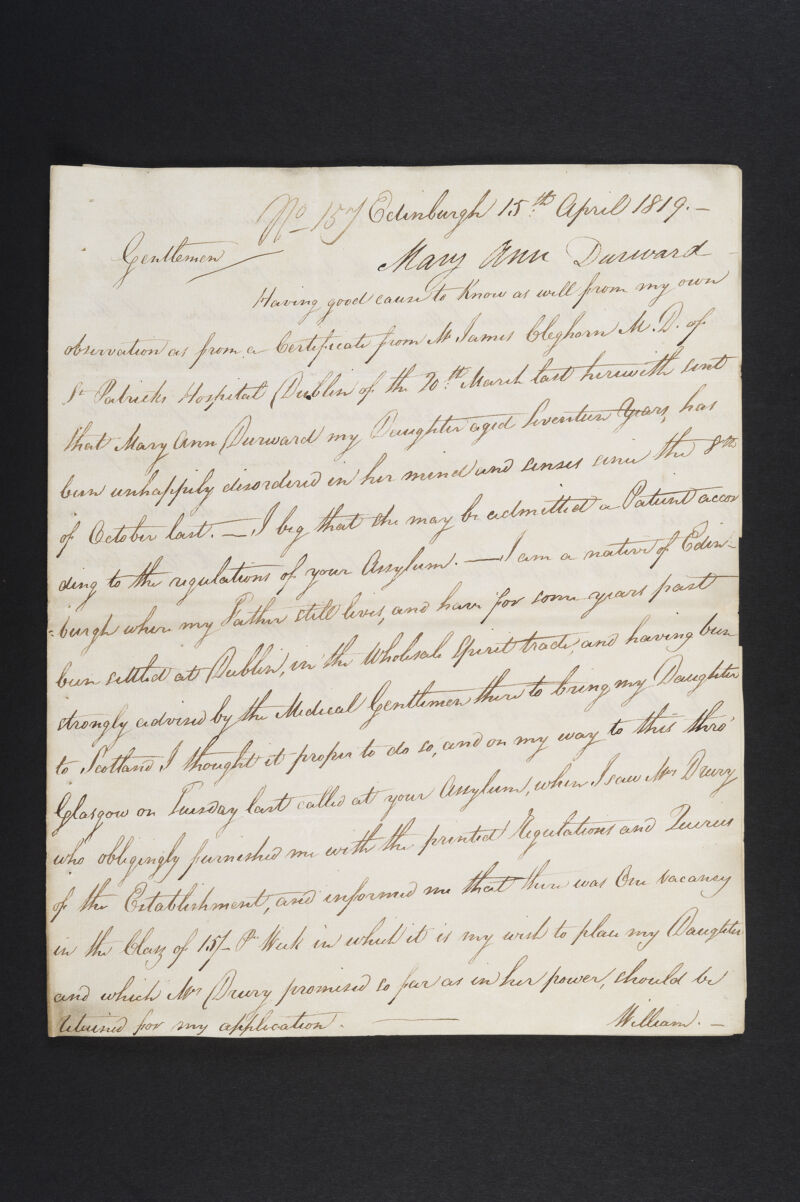 No 157 Edinburgh 15th April 1819.—
Gentlemen
Mary Ann Durward
Having good cause to Know as well from my own
observation as from a Certificate from Mr James Cleghorn M.D. of
St Patricks Hospital Dublin of the 20th March last herewith sent
that Mary Ann Durward my Daughter aged Seventeen Years, has
been unhappily disordered in her mind and senses since the 8th
of October last. — I beg that she may be admitted a Patient accor
ding to the regulations of your Assylum. — I am a native of Edin-
=burgh where my Father still lives, and have for some years past
been settled at Dublin, in the Wholesale Spirit trade, and having been
strongly advised by the Medical Gentlemen there to bring my Daughter
to Scotland I thought it proper to do so, and on my way to this thro'
Glasgow on Tuesday last called at your Assylum, when I saw Mrs Drury
who obligingly furnished me with the printed Regulations and Queries
of the Establishment, and informed me that there was One vacancy
in the Class of 15/- Pr Week in which it is my wish to place my Daughter
and which Mrs Drury promised so far as in her power, should be
retained for my application. —
William. —